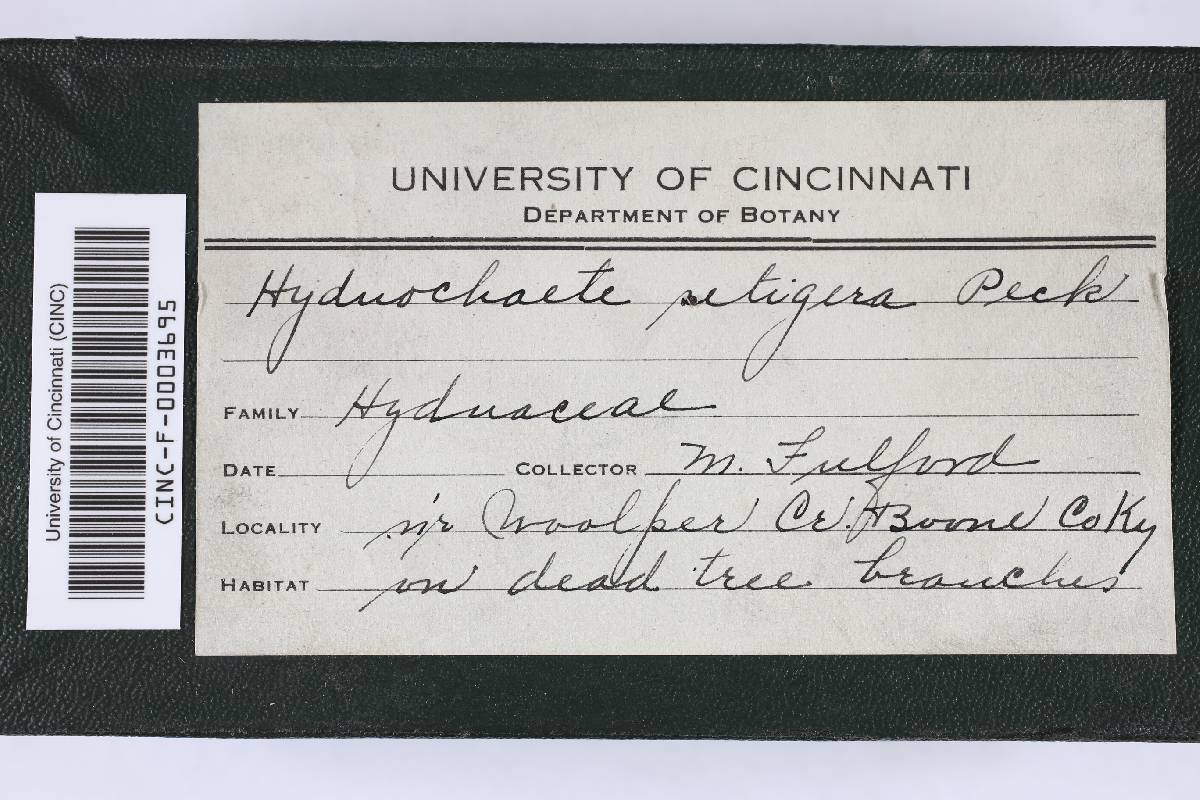 UNIVERSITY OF CINCINNATI
DEPARTMENT OF BOTANY
Hydnochaete setigera Peck
FAMILY Hydnaceae
DATE COLLECTOR M. Fulford
LOCALITY nr Woolper Cr. Boone Co Ky
HABITAT on dead tree branches
University of Cincinnati (CINC)
CINC-F-0003695